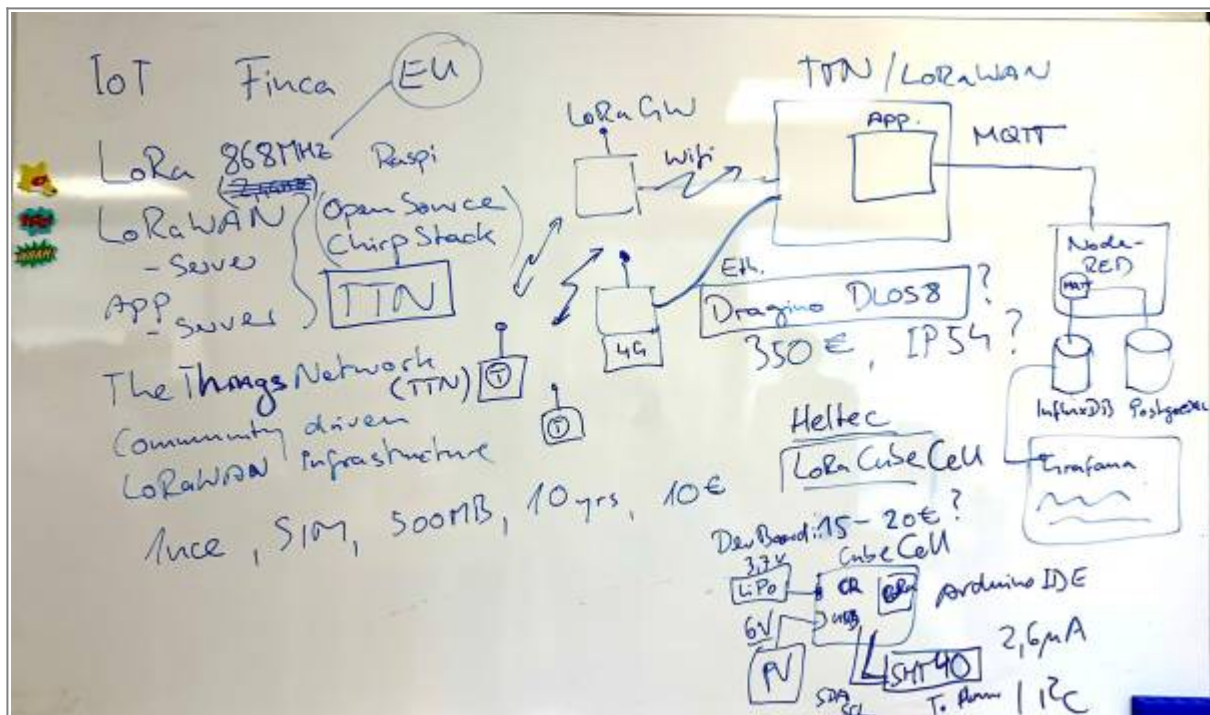 IoT Finca EU
LoRa 868MHz Raspi
LoRaWAN
- Server
APP
- Server
(Open Source
ChirpStack)
TTN
The Things Network
(TTN)
Community driven
LoRaWAN Infrastructure
1nce, SIM, 500MB, 10yrs, 10€
LoRa GW
Wifi
T
T
4G
Eth.
TTN/LoRaWAN
APP.
MQTT
Dragino DLOS8 ?
350€, IP54?
Node-
RED
InfluxDB
Grafana
Heltec
LoRa CubeCell
DevBoard: 15-20€?
CubeCell
3,7V
LiPo
USB
6V
PV
Arduino IDE
SHT40
2,6µA
SDA
SCL
I²C